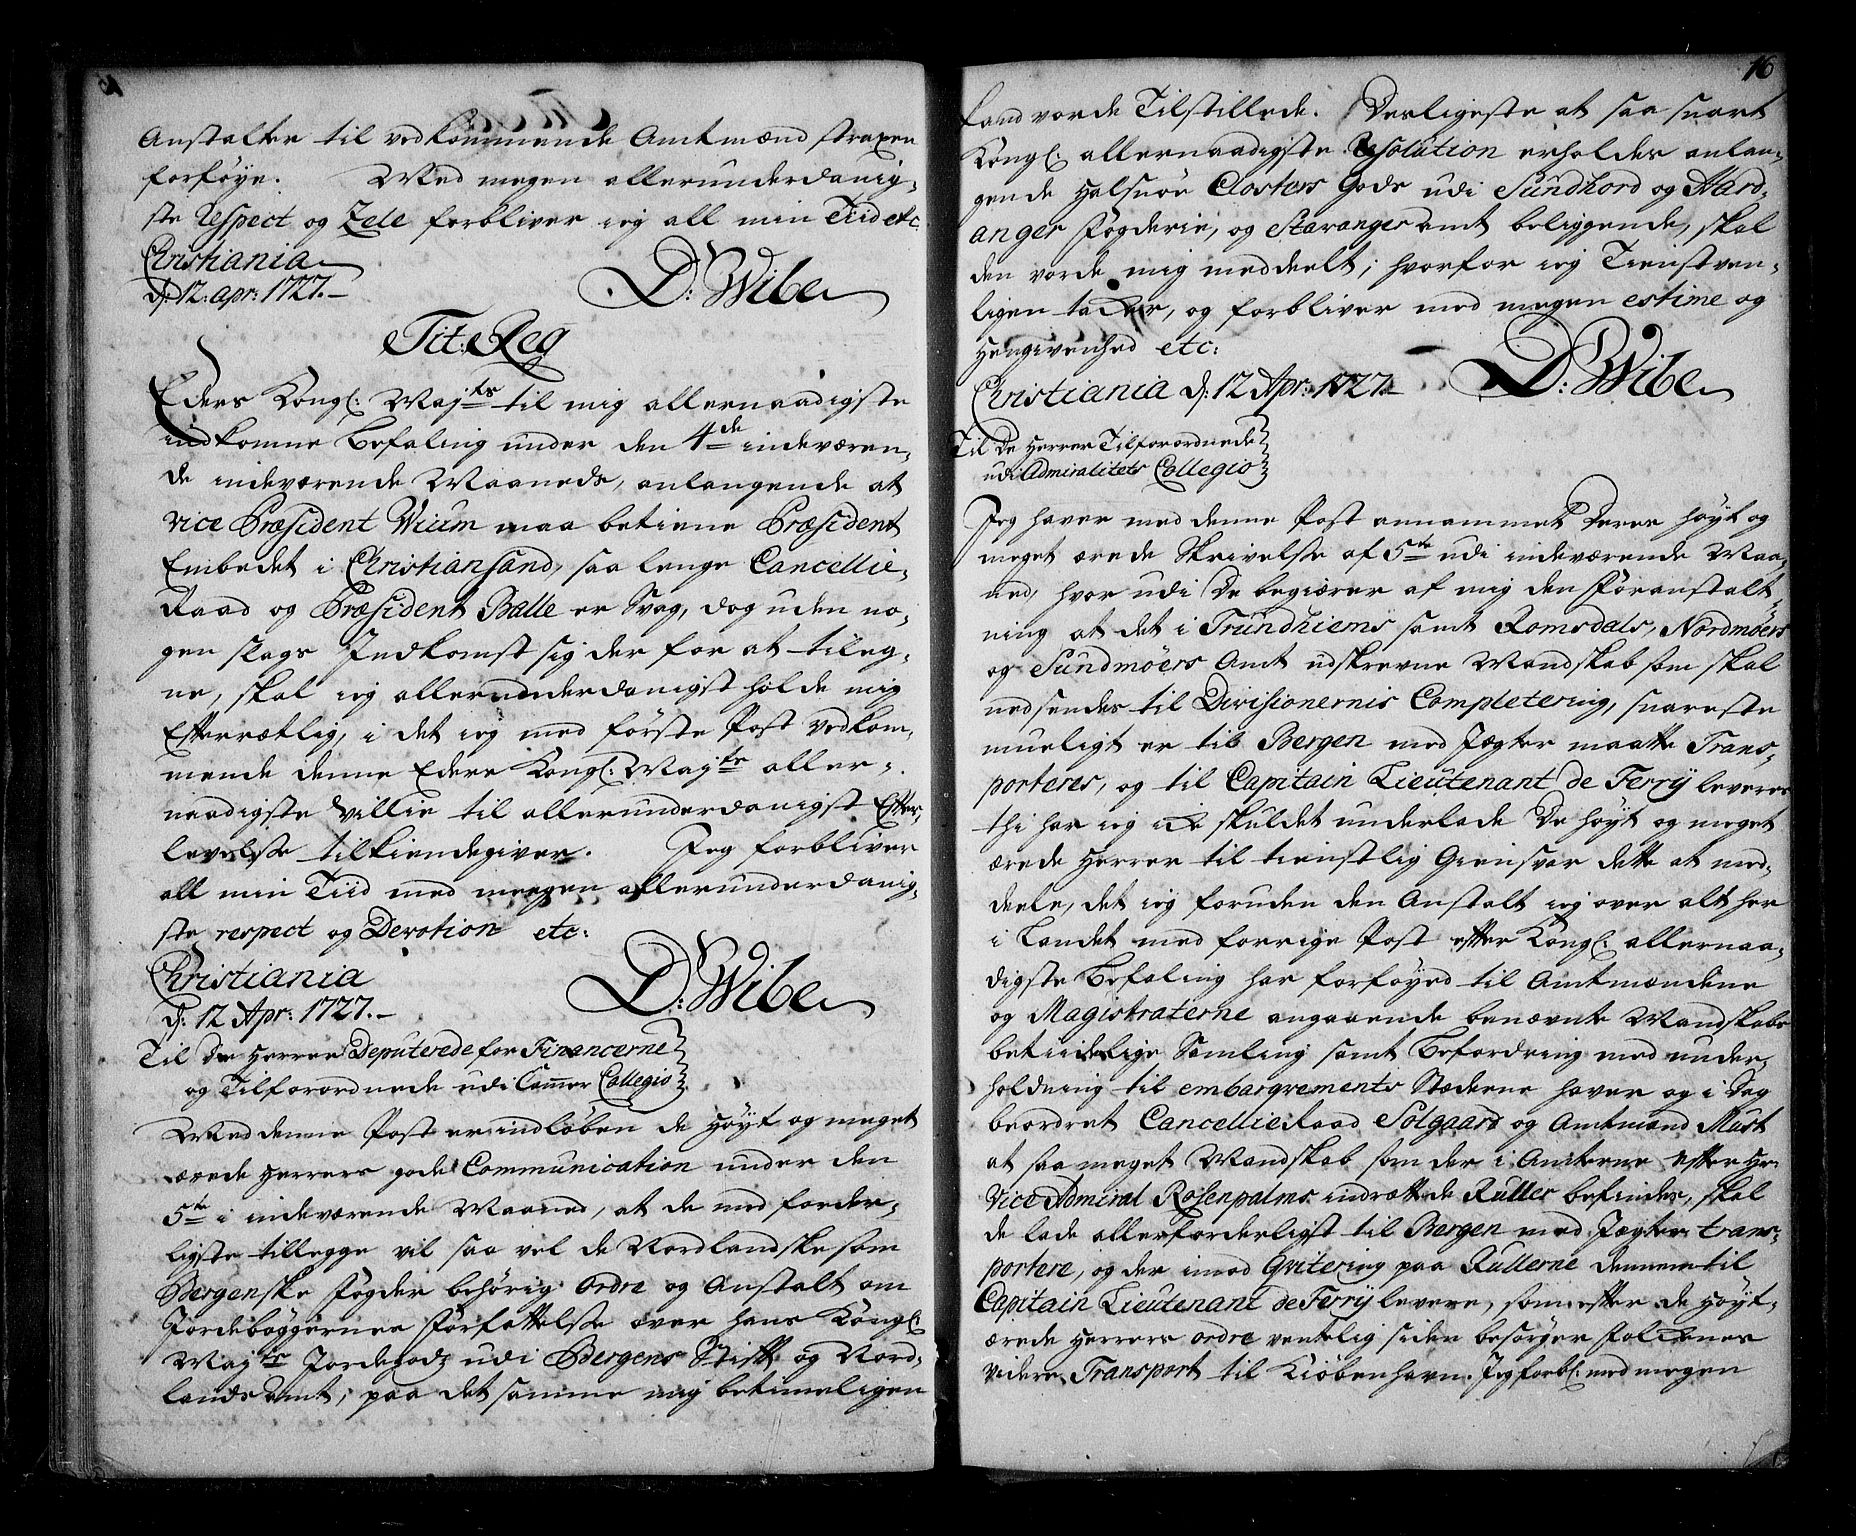 Anstalter til vedkommende Amtmænd straxen
forføye. Med megen allerunderdanig-
ste Respect og Zele forbliver ieg all min Tiid etc
Christiania
d: 12. apr: 1727.
D: Wibe
Tit: Reg
Eders Kongl: Majts til mig allernaadigste
indkomne Befaling under den 4de indeværen-
de indeværende Maaneds, anlangende at
Vice Præsident Wium maa betiene Præsident
Embedet i Christiansand, saa lenge Cancellie-
Raad og Præsident Balle er Svag, dog uden no-
gen slags Indkomst sig der for at tileg-
ne, skal ieg allerunderdanigst holde mig
Efterrætlig, i det ieg med første Post vedkom-
mende denne Eders Kongl: Majts aller-
naadigste Villie til allerunderdanigst Efter-
levelse tilkiendegiver. Jeg forbliver
all min Tiid med megen allerunderdanig-
ste respect og Devotion etc:
Christiania
d: 12 Apr: 1727.
D: Wibe
Til De Herrer Deputerede for Financerne
og Tilforordnede udi Cammer Collegio
Med denne Post er indløben de Høyt og meget
ærede Herrers gode Communication under den
5te i indeværende Maaned, at de med forder-
ligste tillegge vil saa vel de Nordlandske som
Bergenske Fogder behørig Ordre og Anstalt om
Jordebøggernes Forfattelse over hans Kongl:
Majts Jordegodz udi Bergens Stift og Nord-
lands Amt, paa det samme mig betimeligen
16
kand vorde Tilstillede. Desligeste at saa snart
Kongl: allernaadigste Resolution erholdes anlan-
gende Halsnöe Closters Gods udi Sundhord og Hard-
anger Fogderie, og Stavanger Amt beliggende, skal
den vorde mig meddeelt; hvorfor ieg Tienstven-
ligen tacker, og forbliver med megen estime og
Hengivenhed etc:
Christiania d: 12 Apr: 1727.
D: Wibe
Til De Herrer Tilforordnede
udi Admiralitets Collegio
Jeg haver med denne Post annammet Deres høyt og
meget ærede Skrivelse af 5te udi indeværende Maa-
ned, hvor udi De begiærer af mig den Foranstalt-
ning at det i Trundhiems samt Romsdals, Nordmöers
og Sundmöers Amt udskrevne Mandskab som skal
nedsendes til Divisionernis Completering, snareste
mueligt er til Bergen med Jægter maatte Trans-
porteres, og til Capitain Lieutenant de Ferry leveres
thi har ieg icke skuldet underlade De høyt og meget
ærede Herrer til tienstlig Giensvar dette at med-
deele, det ieg foruden den Anstalt ieg over alt her
i Landet med forrige Post efter Kongl: allernaa-
digste Befaling har forføyed til Amtmændene
og Magistraterne angaaende benævnte Mandskabs
betiidelige Samling samt Befordring med under-
holdning til embarqvements Stæderne haver og i Dag
beordret Cancellie Raad Solgaard og Amtmand Must
at saa meget Mandskab som der i Amterne efter Hr:
Vice Admiral Rosenpalms indrættede Ruller befindes, skal
de lade allerforderligst til Bergen med Jægter trans-
portere, og der imod Qvitering paa Rullerne dennem til
Capitain Lieutenant de Ferry levere, som efter de Høyt-
ærede Herrers ordre ventelig siden besørger Folckenes
videre Transport til Kiöbenhavn. Jeg forbl: med megen